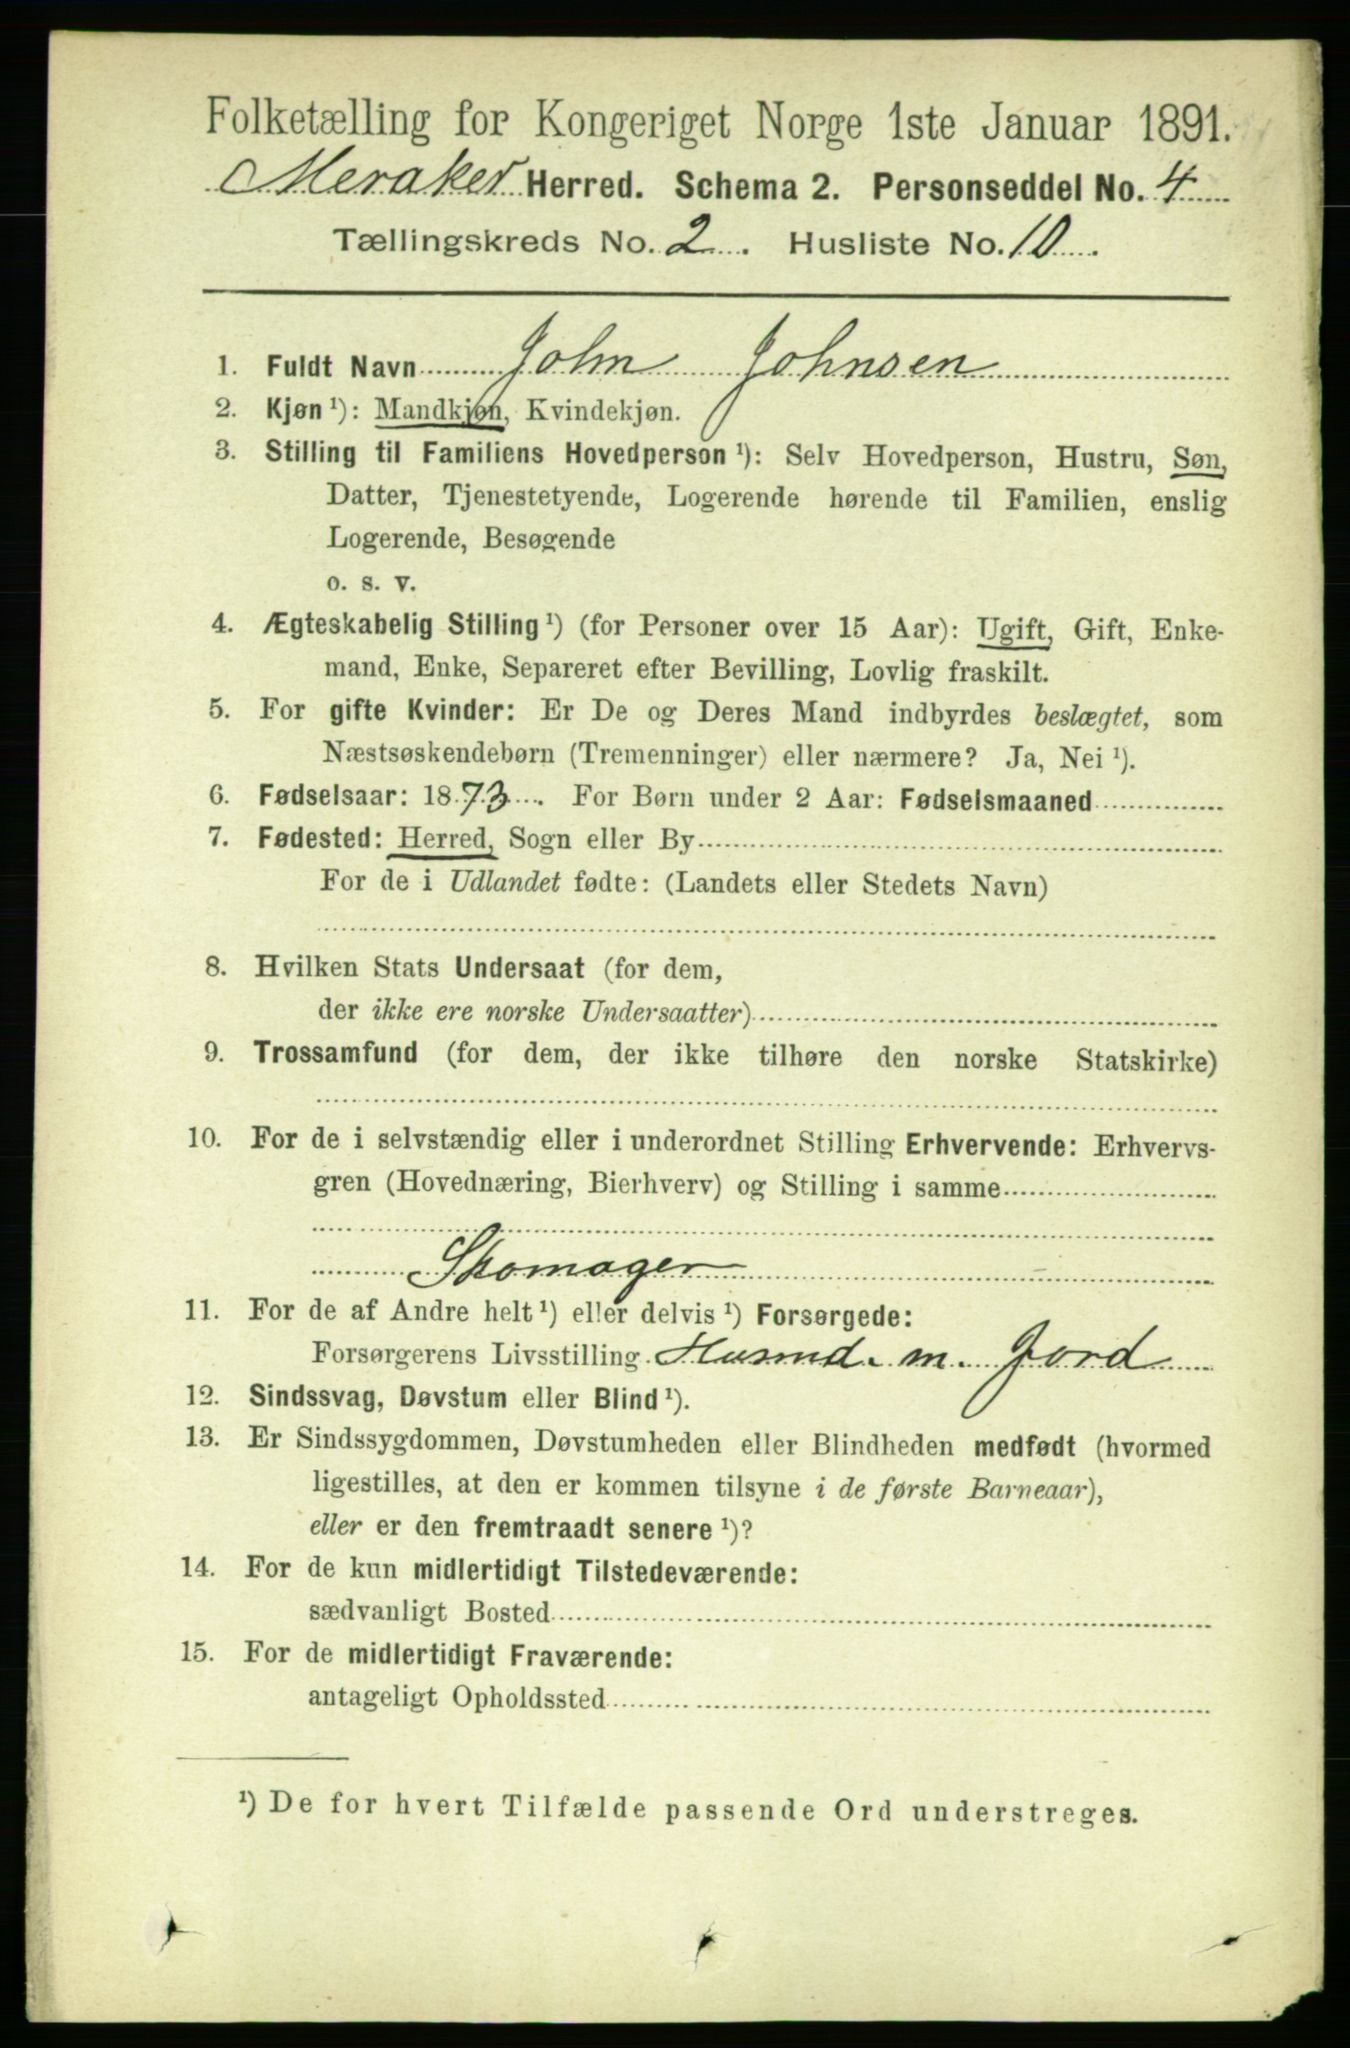 Folketælling for Kongeriget Norge 1ste Januar 1891.
Meraker Herred. Schema 2. Personseddel No. 4
Tællingskreds No. 2. Husliste No. 10.
1. Fuldt Navn John Johnsen
2. Kjøn ¹): Mandkjøn, Kvindekjøn.
3. Stilling til Familiens Hovedperson ¹): Selv Hovedperson, Hustru, Søn,
Datter, Tjenestetyende, Logerende hørende til Familien, enslig
Logerende, Besøgende
o. s. v.
4. Ægteskabelig Stilling ¹) (for Personer over 15 Aar): Ugift, Gift, Enke-
mand, Enke, Separeret efter Bevilling, Lovlig fraskilt.
5. For gifte Kvinder: Er De og Deres Mand indbyrdes beslægtet, som
Næstsøskendebørn (Tremenninger) eller nærmere? Ja, Nei ¹).
6. Fødselsaar: 1873. For Børn under 2 Aar: Fødselsmaaned
7. Fødested: Herred, Sogn eller By
For de i Udlandet fødte: (Landets eller Stedets Navn)
8. Hvilken Stats Undersaat (for dem,
der ikke ere norske Undersaatter)
9. Trossamfund (for dem, der ikke tilhøre den norske Statskirke)
10. For de i selvstændig eller i underordnet Stilling Erhvervende: Erhvervs-
gren (Hovednæring, Bierhverv) og Stilling i samme
Skomager
11. For de af Andre helt ¹) eller delvis ¹) Forsørgede:
Forsørgerens Livsstilling Husmd. m. Jord
12. Sindssvag, Døvstum eller Blind ¹).
13. Er Sindssygdommen, Døvstumheden eller Blindheden medfødt (hvormed
ligestilles, at den er kommen tilsyne i de første Barneaar),
eller er den fremtraadt senere ¹)?
14. For de kun midlertidigt Tilstedeværende:
sædvanligt Bosted
15. For de midlertidigt Fraværende:
antageligt Opholdssted
¹) De for hvert Tilfælde passende Ord understreges.